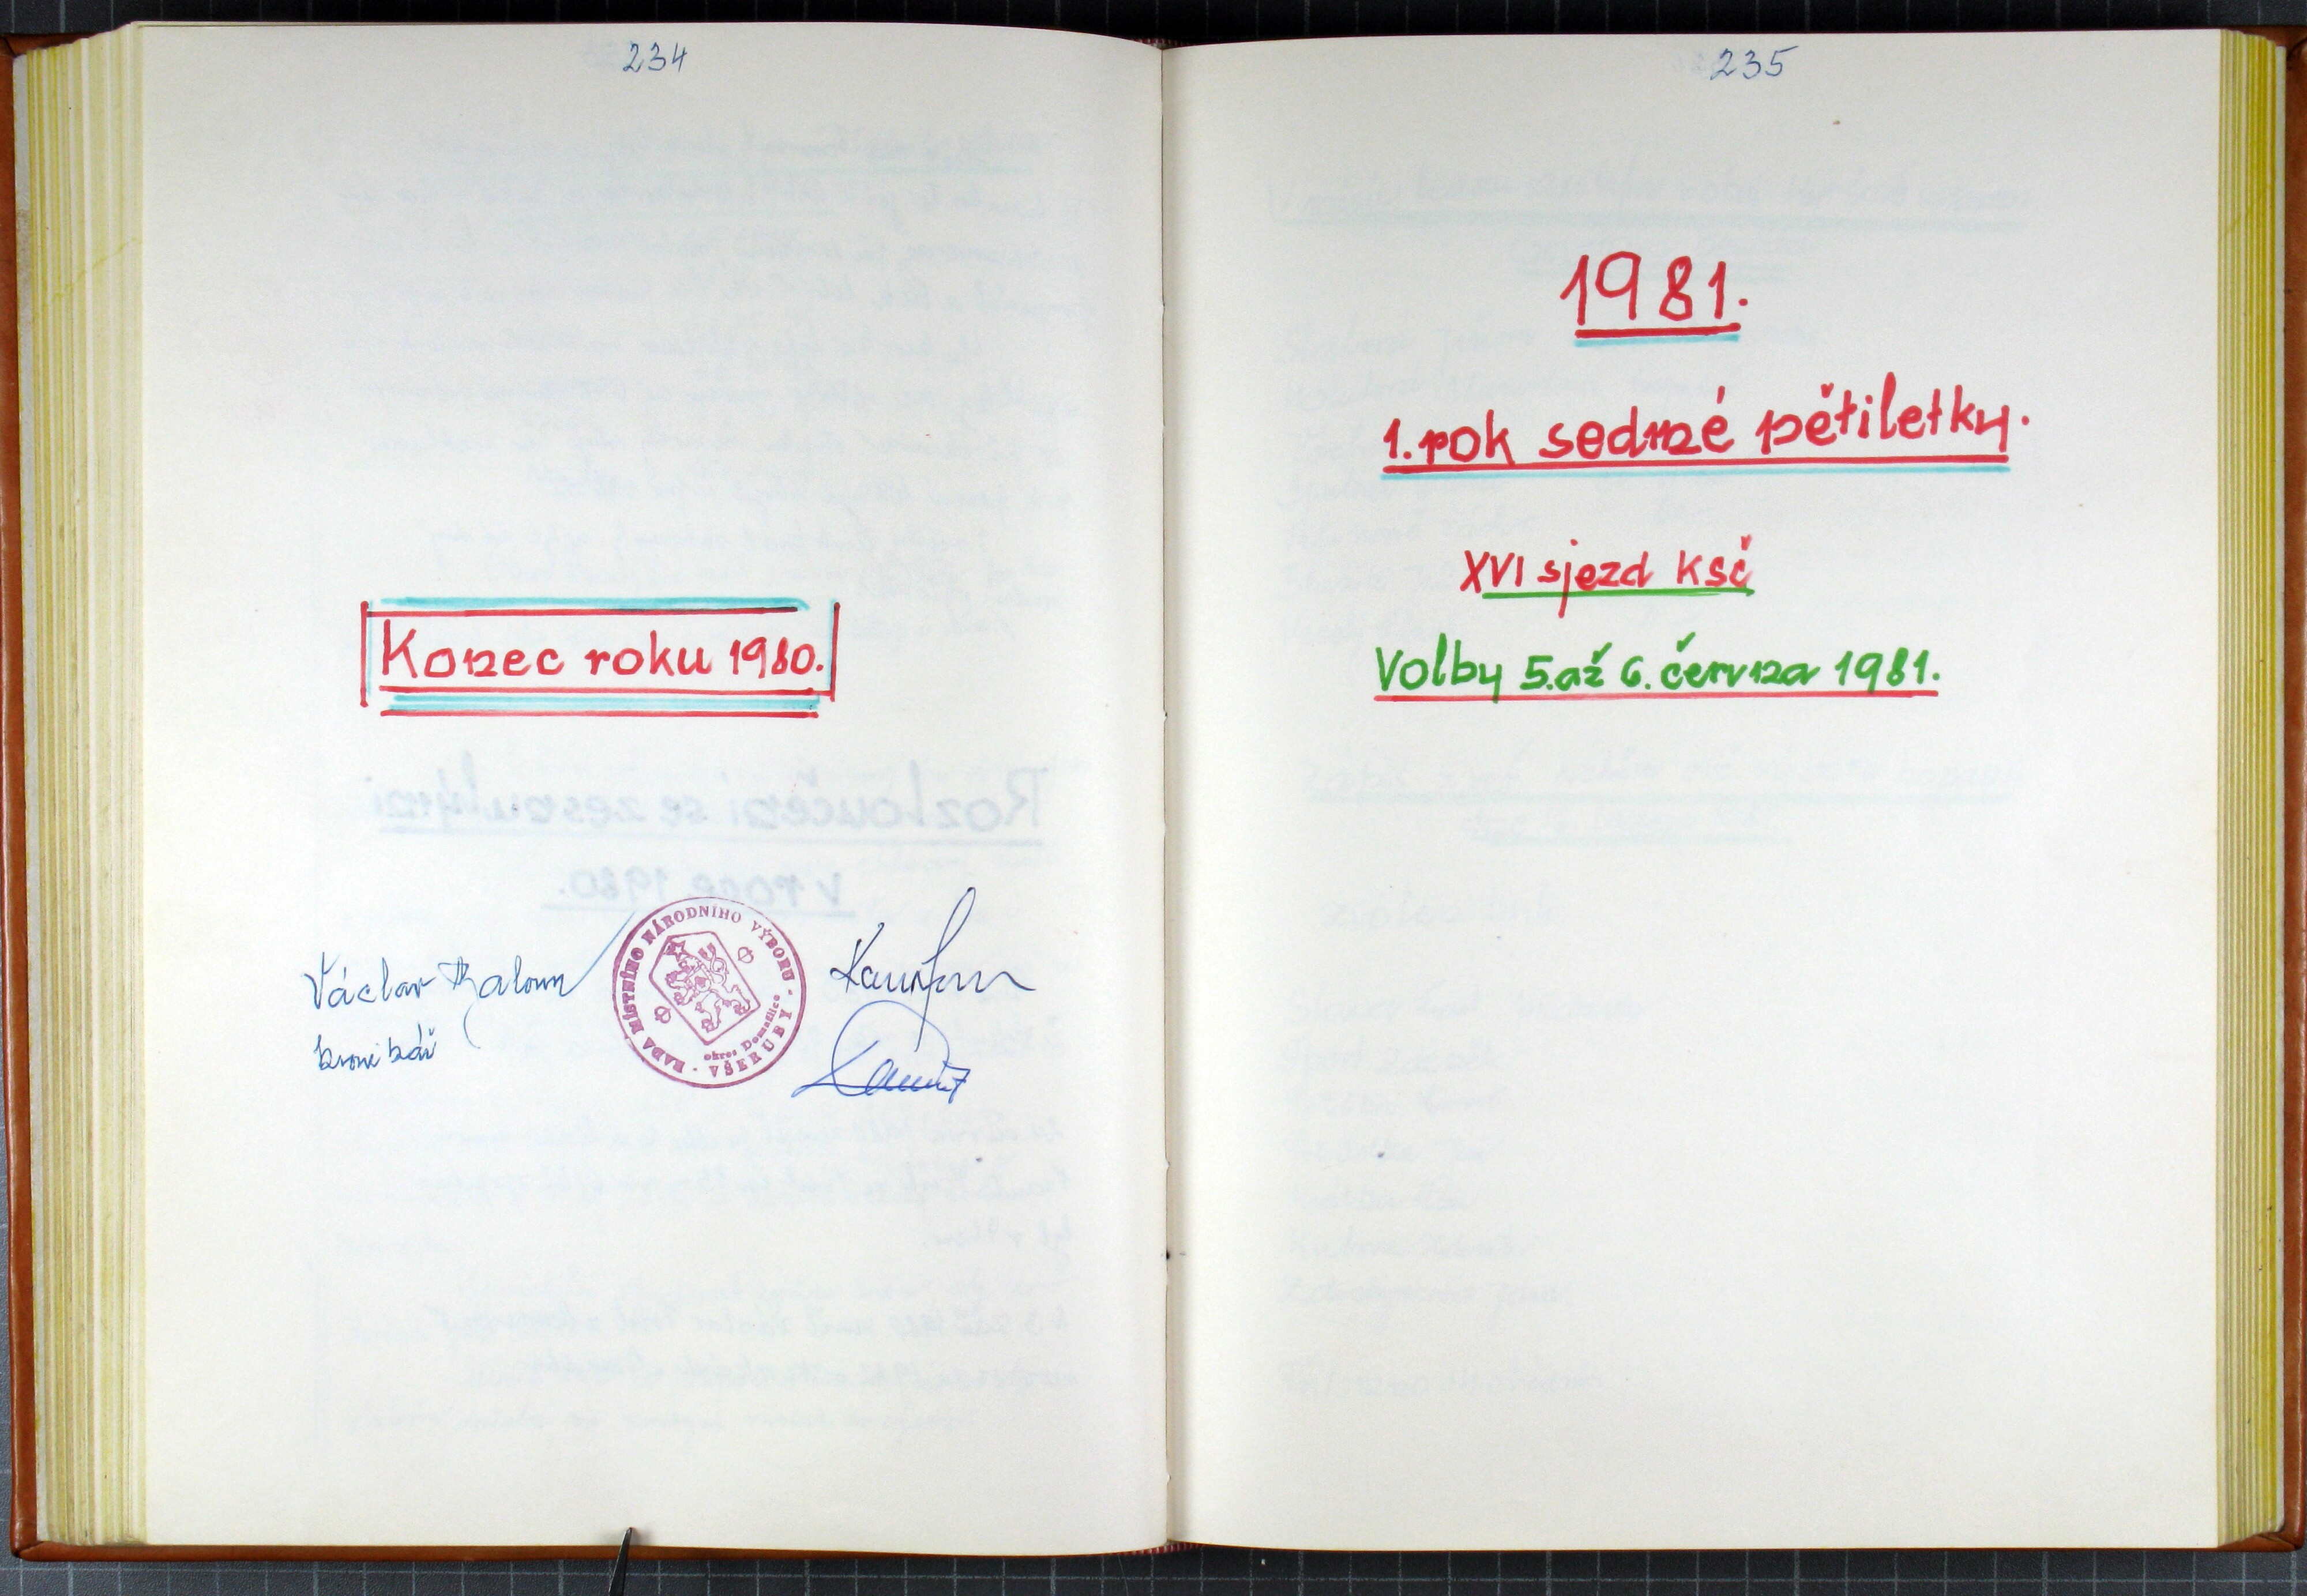 234
Konec roku 1980.
Václav Baloun
kronikář
RADA MÍSTNÍHO NÁRODNÍHO VÝBORU
okres Domažlice
VŠERUBY
235
1981.
1. rok sedmé pětiletky.
XVI sjezd KSČ
Volby 5. až 6. června 1981.